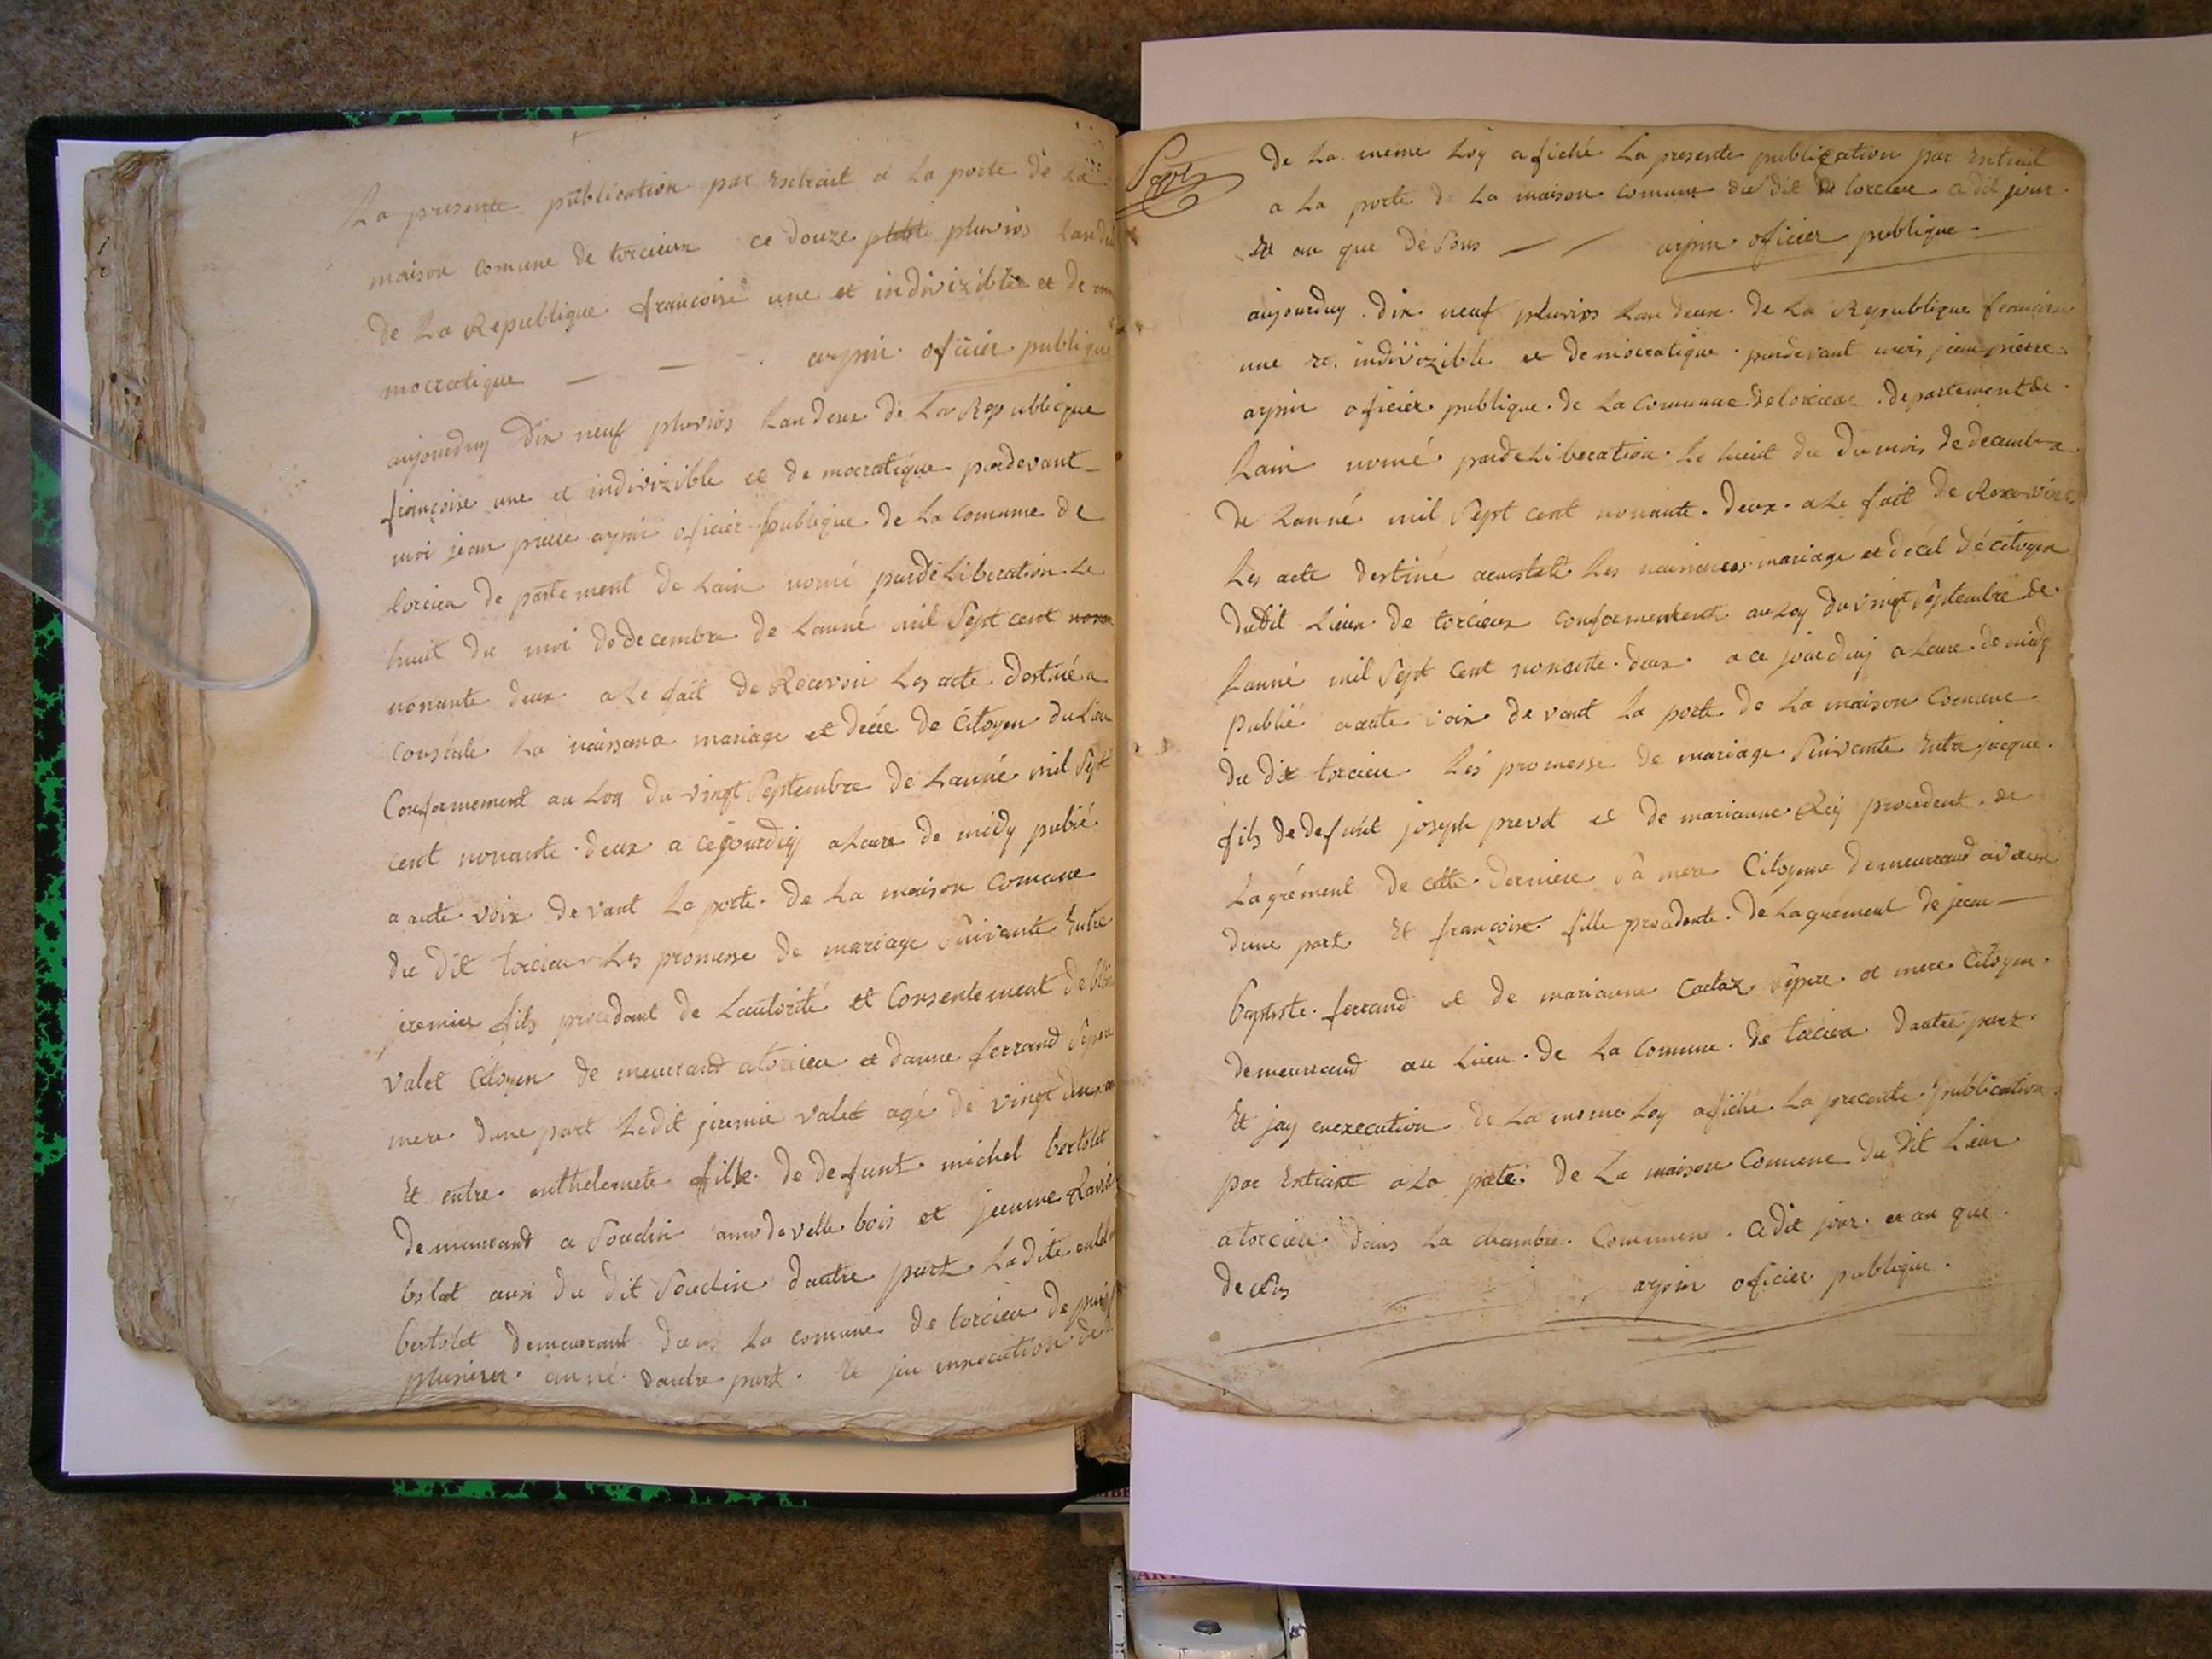 La presente publication par Extrait a La porte de La
maison comune de torcieux ce douze pluviôs Lan deux
de La Republique francoise une et indivizible et de
mocratique — — arpin oficier publique
aujourduy Dix neuf pluviôs Lan deux de La Republique
françoise une et indivizible et de mocratique pardevant
moi jean pierre arpin oficier publique de La Comune de
torcieu de partement de Lain nomé pardeLiberation Le
huit du moi de decembre de Lanné mil Sept cent
nonante deux a Le fait de Recevoir Les acte destiné a
Constate La naissance mariage et décé de Citoyen du Lieu
Conformement au Loy du vingt Septembre de Lanné mil Sept
cent nonante deux a cejourduy a Leure de midy publié
a aute voix de vant La porte de La maison comune
du dit torcieu Les promesse de mariage Suivante Entre
jremier fils procedant de Lautorité et Consentement de
valet Citoyen de meurrand a torcieu et danne ferrand
mere dune part Ledit jeremie valet agé de vingt
Et entre anthelemete fille de defunt michel bertolet
demeurrant a Soudin de velle bois et jeanne
aussi du dit Soudin dautre part Ladite
bertolet demeurrant dans La comune de torcieu depuis
plusieur anné dautre part. Et jai en execution de
de La meme Loy afiché La presente publication par Extrait
a La porte de La maison comune du dit torcieu a dit jour
Et an que dèSous — — arpin oficier publique
aujourduy dix neuf pluvios Lan deux de La Republique françoise
une et indivizible et democratique pardevant mois jean pierre
arpin oficier publique de La Commune de torcieux departement de
Lain nomé pardeLiberation Le huit du du mois de decembre
de Lanné mil Sept cent nonante deux a Le fait de Recevoir
Les acte destiné a constaté Les naisences mariage et decet dé citoyen
dudit Lieux de torcieux conformement au Loy du vingt Septembre de
Lanné mil Sept Cent nonante deux a ce jourduy a Leure de midy
publié a aute voix de vant La porte de La maison Comune
du dit torcieu Lés promesse de mariage Suivante Entre jacque
fils de defunt joseph prevot et de marianne Rey procedent de
Lagrément de cette derniere Sa mere Citoyenne demeurrand
dune part Et françoise fille procedente de Lagrément de jean
baptiste ferrand et de marianne Carlaz père et mere Citoyen
demeurrand au Lieu de La Comune de torcieu dautre part
Et jay enexecution de La meme Loy afiché La precente publication
par Extrait a La porte de La maison Comune du dit Lieu
a torcieu dans La chambre Commune a dit jour et an que
deSus arpin oficier publique